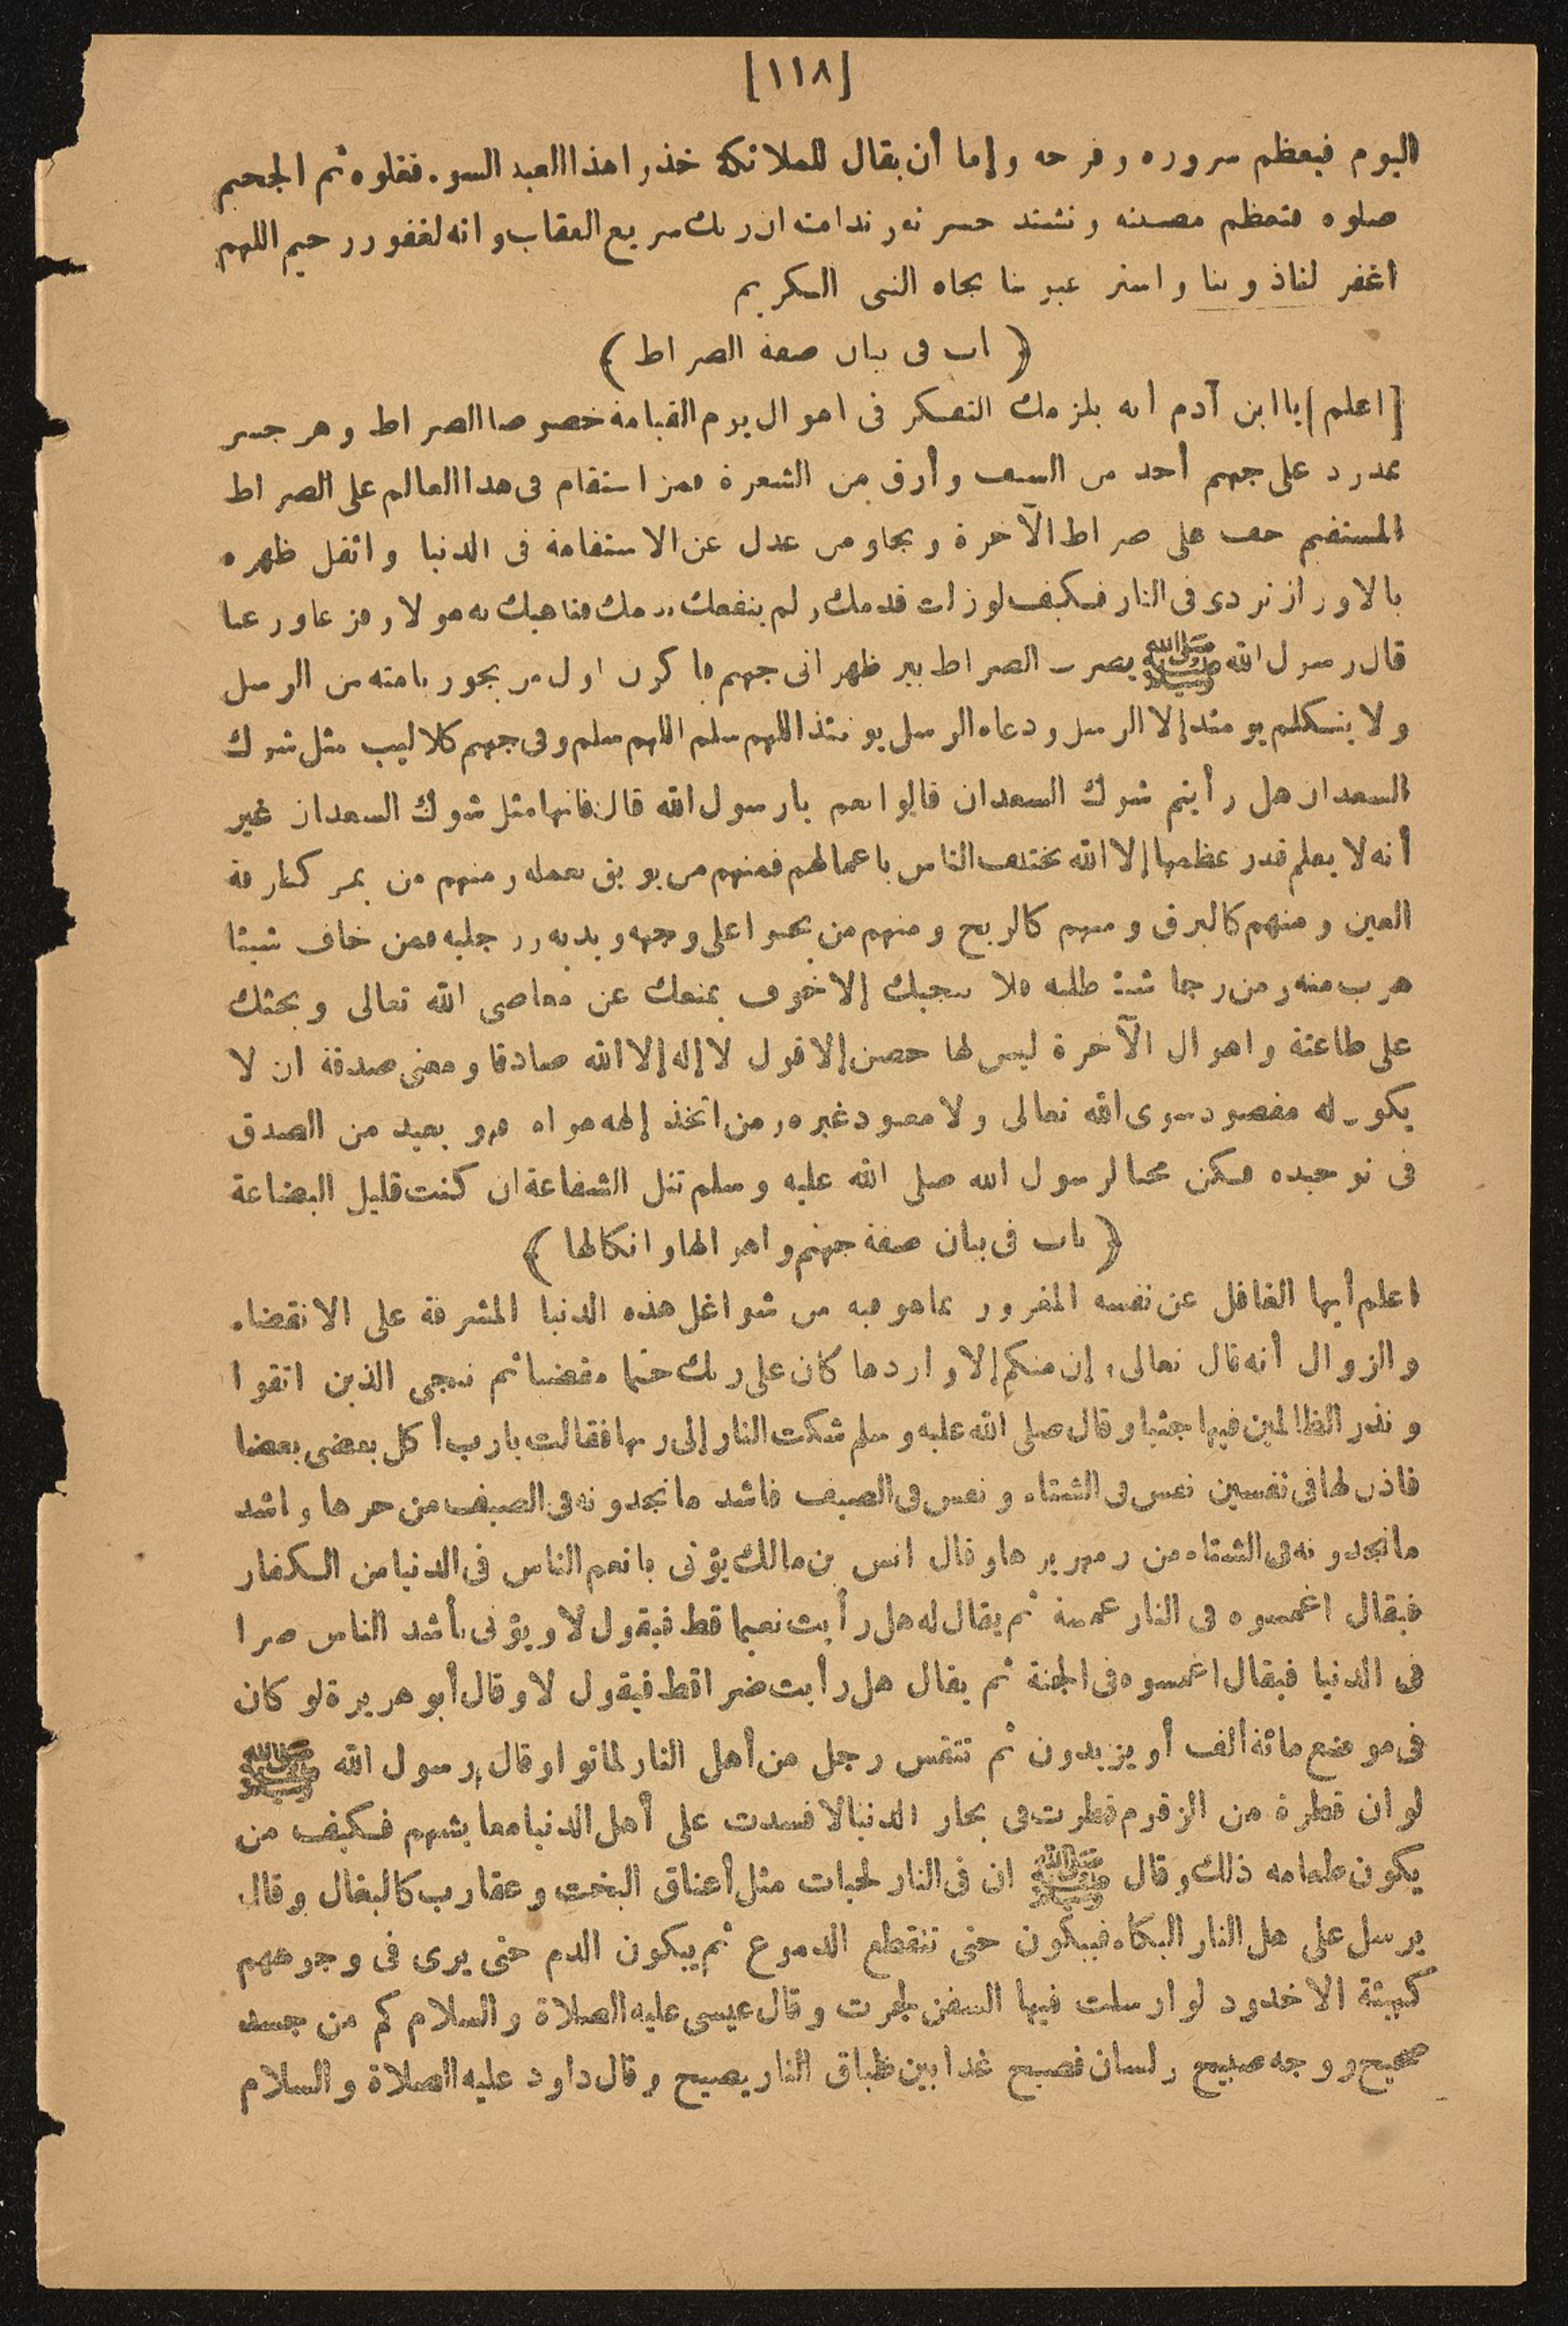 [١١٨]
اليوم فيعظم سروره وفرحه وإما أن يقال للملائكة خذوا هذا العبد السوء فغلوه ثم الجحيم
صلوه فتعظم مصيبته وتشتد حسرته وندامته ان ربك سريع العقاب وانه لغفور رحيم اللهم
اغفر لنا ذنوبنا واستر عيوبنا بجاه النبى الكريم
﴿ باب فى بيان صفة الصراط ﴾
[اعلم] يا ابن آدم انه يلزمك التفكر فى اهوال يوم القيامة خصوصا الصراط وهو جسر
ممدود على جهنم أحد من السيف وأرق من الشعرة فمن استقام فى هذا العالم على الصراط
المستقيم خف على صراط الآخرة ونجا ومن عدل عن الاستقامة فى الدنيا واثقل ظهره
بالاوزار تردى فى النار فكيف لو زلت قدمك ولم ينفعك ندمك فناهيك به هولا وفزعا ورعبا
قال رسول الله ﷺ يضرب الصراط بين ظهرانى جهنم فاكون اول من يجوز بامته من الرسل
ولا يتكلم يومئذ إلا الرسل ودعاء الرسل يومئذ اللهم سلم اللهم سلم وفى جهنم كلاليب مثل شوك
السعدان هل رأيتم شوك السعدان قالوا نعم يا رسول الله قال فانها مثل شوك السعدان غير
أنه لا يعلم قدر عظمها إلا الله تختطف الناس باعمالهم فمنهم من يوبق بعمله ومنهم من يمر كطرفة
العين ومنهم كالبرق ومنهم كالريح ومنهم من يحبوا على وجهه ويديه ورجليه فمن خاف شيئا
هرب منه ومن رجا شيئا طلبه فلا ينجيك إلا خوف يمنعك عن معاصى الله تعالى ويحثك
على طاعتة واهوال الآخرة ليس لها حصن إلا قول لا إله إلا الله صادقا ومعنى صدقة ان لا
يكون له مقصود سوى الله تعالى ولا معبود غيره ومن اتخذ إلهه هواه فهو بعيد من الصدق
فى توحيده فكن محبا لرسول الله صلى الله عليه وسلم تنل الشفاعة ان كنت قليل البضاعة
﴿ باب فى بيان صفة جهنم واهوالها وانكالها ﴾
اعلم أيها الغافل عن نفسه المغرور بما هو فيه من شواغل هذه الدنيا المشرفة على الانقضاء
والزوال أنه قال تعالى، إن منكم إلا واردها كان على ربك حتما مقضيا ثم ننجى الذين اتقوا
ونذر الظالمين فيها جثيا وقال صلى الله عليه وسلم شكت النار إلى ربها فقالت يارب أكل بعضى بعضا
فاذن لها فى نفسين نفس فى الشتاء ونفس فى الصيف فاشد ما تجدونه فى الصيف من حرها واشد
ما تجدونه فى الشتاء من زمهريرها وقال انس بن مالك يؤتى بانعم الناس فى الدنيا من الكفار
فيقال اغمسوه فى النار غمسة ثم يقال له هل رأيت نعيما قط فيقول لا ويؤتى بأشد الناس ضرا
فى الدنيا فيقال اغمسوه فى الجنة ثم يقال هل رأيت ضرا قط فيقول لا وقال أبو هريرة لو كان
فى موضع مائة ألف أو يزيدون ثم تنفس رجل من أهل النار لماتوا وقال رسول الله ﷺ
لو ان قطرة من الزقوم قطرت فى بحار الدنيا لافسدت على أهل الدنيا معايشهم فكيف من
يكون طعامه ذلك وقال ﷺ ان فى النار لحيات مثل أعناق البخت وعقارب كالبغال وقال
يرسل على هل النار البكاء فيبكون حتى تنقطع الدموع ثم يبكون الدم حتى يرى فى وجوههم
كهيئة الاخدود لو ارسلت فيها السفن لجرت وقال عيسى عليه الصلاة والسلام كم من جسد
صحيح ووجه صبيح ولسان فصيح غدا بين طباق النار يصيح وقال داود عليه الصلاة والسلام